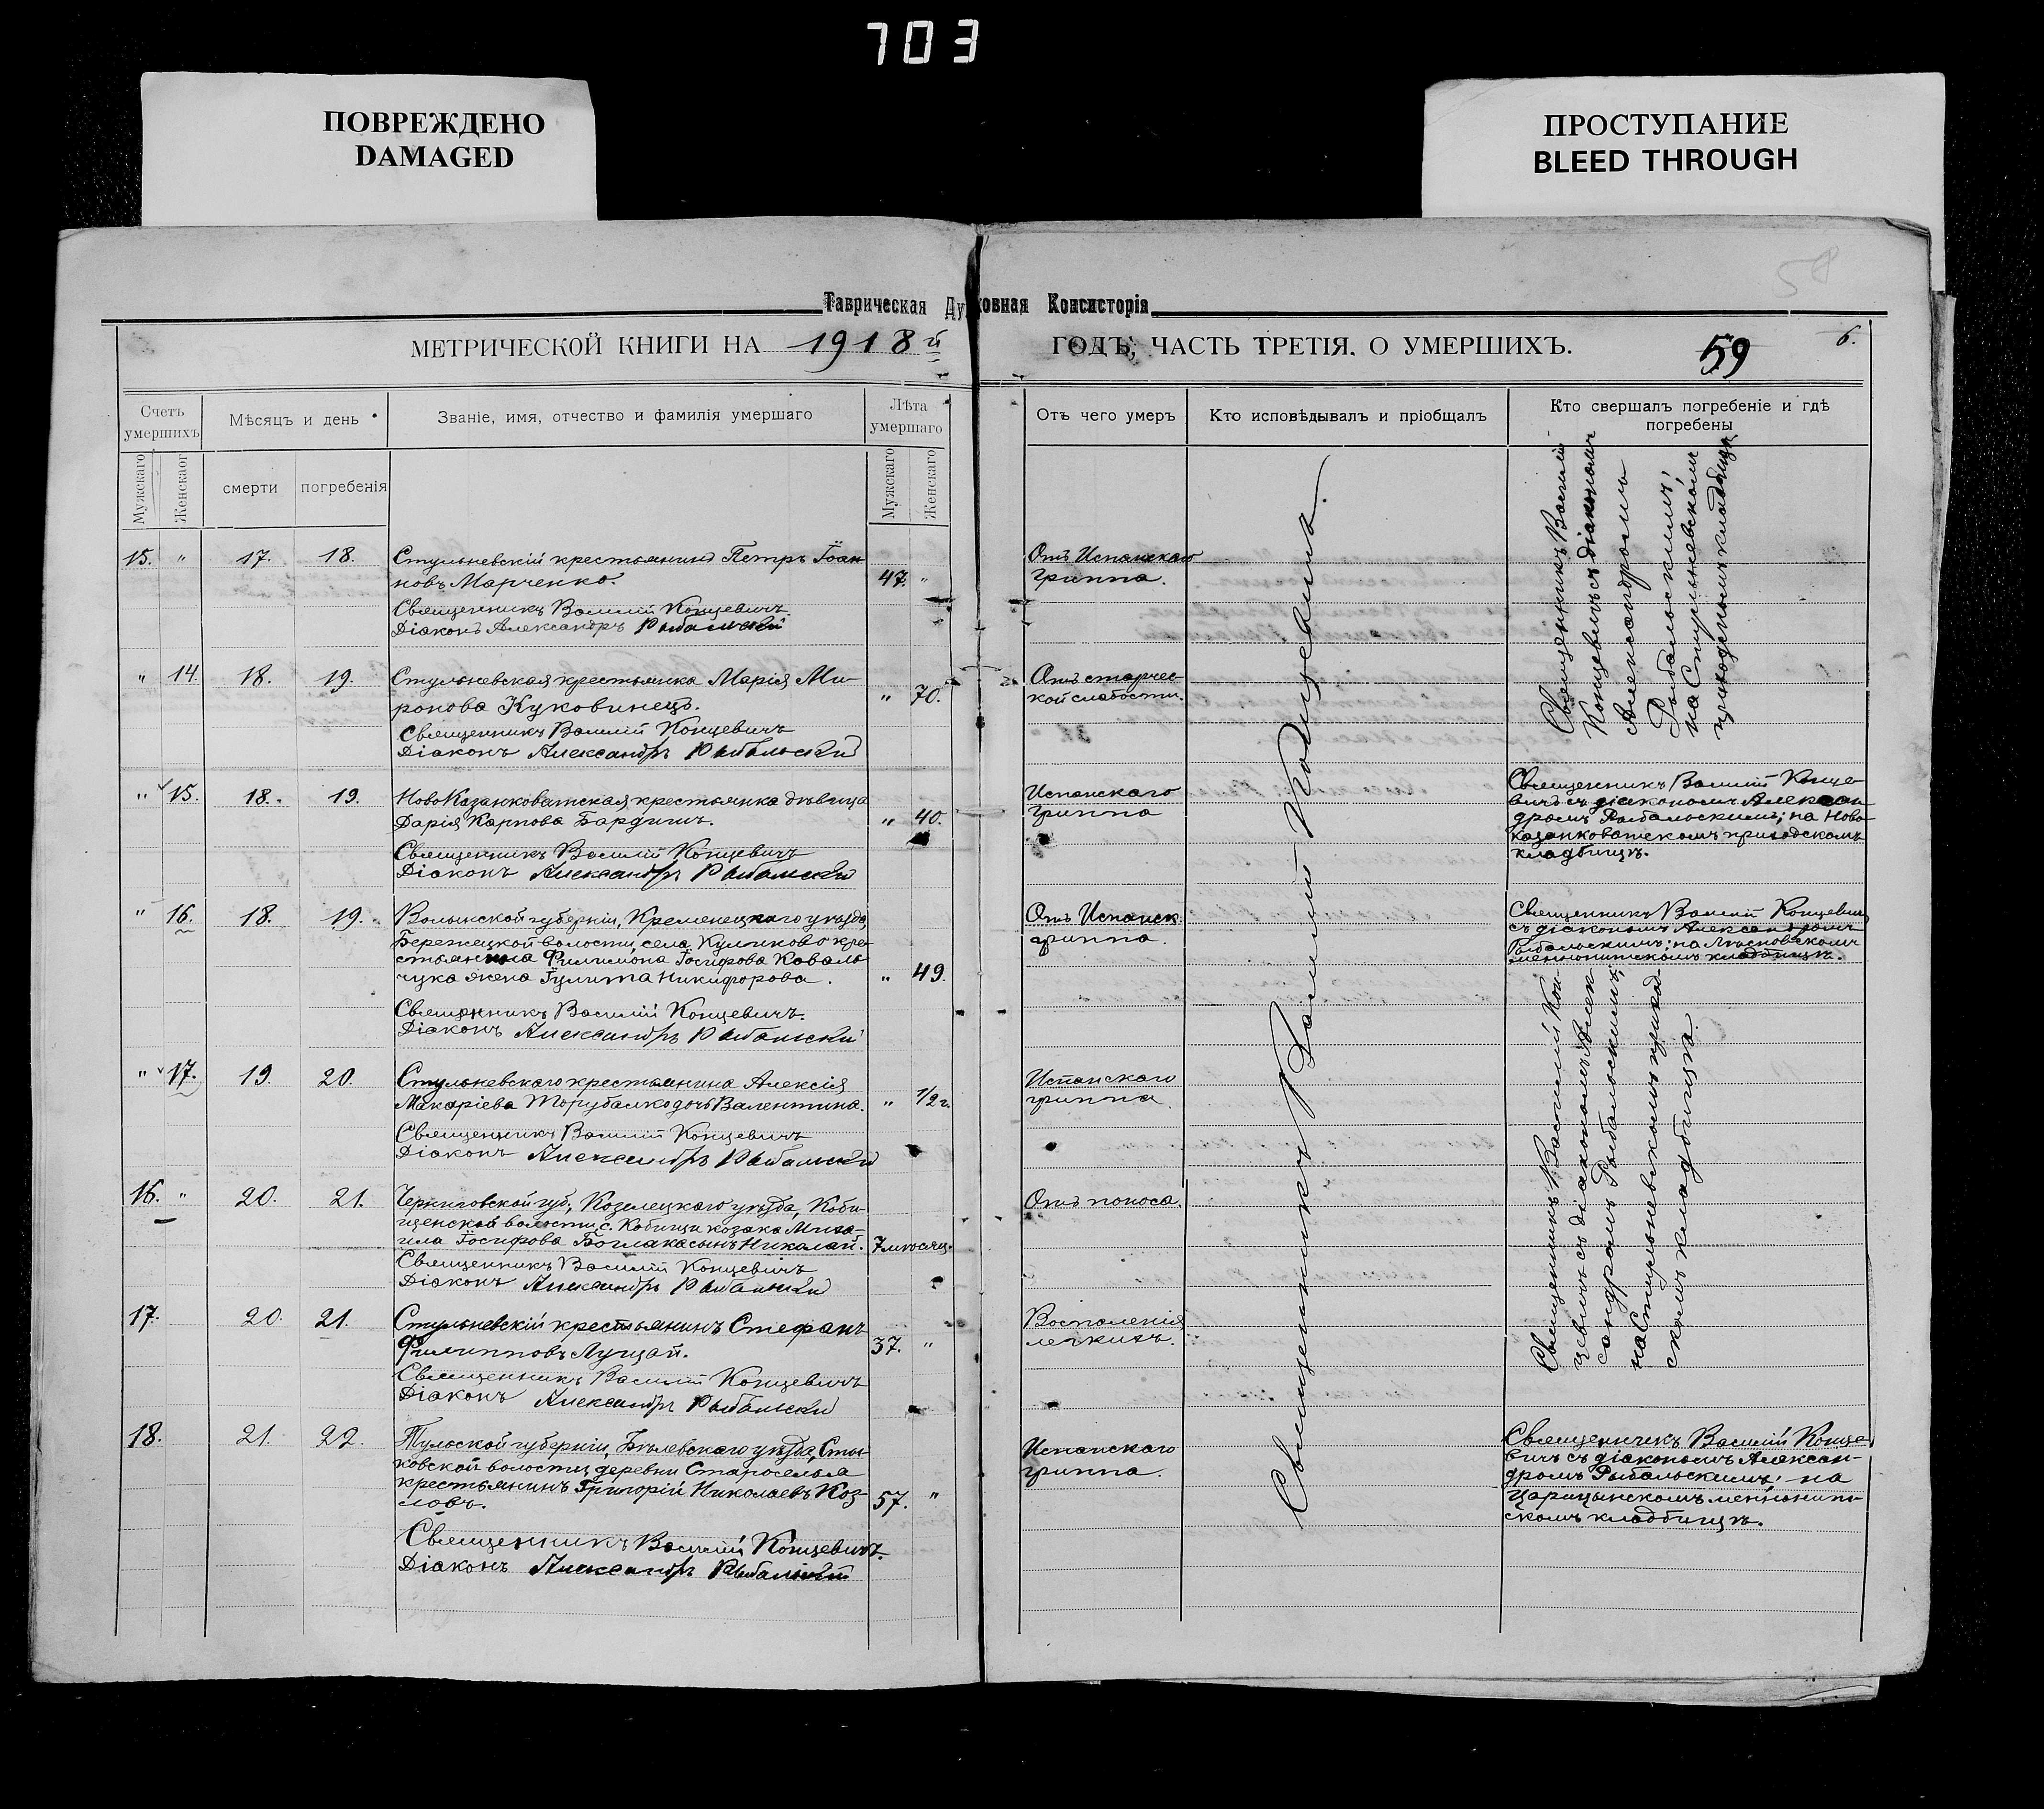 703
ПОВРЕЖДЕНО
DAMAGED
ПРОСТУПАНИЕ
BLEED THROUGH
58
Таврическая Духовная Консисторія
МЕТРИЧЕСКОЙ КНИГИ НА 1918й ГОДЪ, ЧАСТЬ ТРЕТІЯ. О УМЕРШИХЪ.
59
6.
Счетъ умершихъ
Мѣсяцъ и день
Званіе, имя, отчество и фамилія умершаго
Лѣта умершаго
Отъ чего умеръ
Кто исповѣдывалъ и пріобщалъ
Кто свершалъ погребеніе и гдѣ погребены
Мужскаго
Женскаог
смерти
погребенія
Мужскаго
Женскаго
15. " 17. 18. Стульневскій крестьянинъ Петръ Іоан-
новъ Марченко. 47. "
Священникъ Василій Концевичъ
Діаконъ Александръ Рыбальскій
Отъ Испанскаго
гриппа.
" 14. 18. 19. Стульневская крестьянка Марія Ми-
ронова Куковинецъ. " 70.
Священникъ Василій Концевичъ
Діаконъ Александръ Рыбальскій
Отъ старчес-
кой слабости.
Священникъ Василій
Концевичъ съ діакономъ
Александромъ
Рыбальскимъ,
на Стульневскомъ
приходскомъ кладбищѣ
" 15. 18. 19. НовоКазанковатская крестьянка дѣвица
Дарія Карпова Бардишъ. " 40.
Священникъ Василій Концевичъ
Діаконъ Александръ Рыбальскій
Испанскаго
гриппа
Священникъ Василій Конце-
вичъ съ діакономъ Алексан-
дромъ Рыбальскимъ; на Ново
казанковатскомъ приходскомъ
кладбищѣ.
" 16. 18. 19. Волынской губерніи, Кременецкаго уѣзда,
Бережецкой волости, села Куликово кре-
стьянина Филимона Іосифова Коваль-
чука жена Гулита Никифорова. " 49.
Священникъ Василій Концевичъ.
Діаконъ Александръ Рыбальскій
Отъ Испанск.
гриппа.
Священникъ Василій Концевичъ
съ діакономъ Александромъ
Рыбальскимъ; на
меннонитскомъ кладбищѣ.
" 17. 19. 20. Стульневскаго крестьянина Алексія
Макаріева Торубалко дочь Валентина. " 1/2 г.
Священникъ Василій Концевичъ
Діаконъ Александръ Рыбальскій
Испанскаго
гриппа.
16. " 20. 21. Черниговской губ., Козелецкаго уѣзда, Коби-
щенской волости, с. Кобищи козака Миха-
ила Іосифова сынъ Николай. 7 мѣсяц.
Священникъ Василій Концевичъ
Діаконъ Александръ Рыбальскій
Отъ поноса.
17. 20. 21. Стульневскій крестьянинъ Стефанъ
Филипповъ Луцай. 37. "
Священникъ Василій Концевичъ
Діаконъ Александръ Рыбальскій
Воспаленія
легкихъ.
Священникъ Василій Кон-
цевичъ съ діакономъ Алек-
сандромъ Рыбальскимъ,
на Стульневскомъ приход-
скомъ кладбищѣ.
18. 21. 22. Тульской губерніи, Бѣлевскаго уѣзда,
волости, деревни Староселья
крестьянинъ Григорій Николаевъ Коз-
ловъ. 57. "
Священникъ Василій Концевичъ.
Діаконъ Александръ Рыбальскій
Испанскаго
гриппа.
Священникъ Василій Конце-
вичъ съ діакономъ Алексан-
дромъ Рыбальскимъ; на
Царицынскомъ меннонит-
скомъ кладбищѣ.
Священникъ Василій Концевичъ.